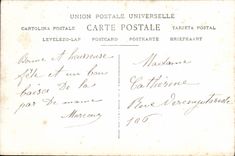 UNION POSTALE UNIVERSELLE
CARTOLINA POSTALE CARTE POSTALE TARJETA POSTAL
LEVELEZO-LAP POSTCARD POSTKARTE BRIEFKAART
Bonne et heureuse
fête et un bon
baiser De la
par De
Madame
Cathérine
Place Vercingétorix